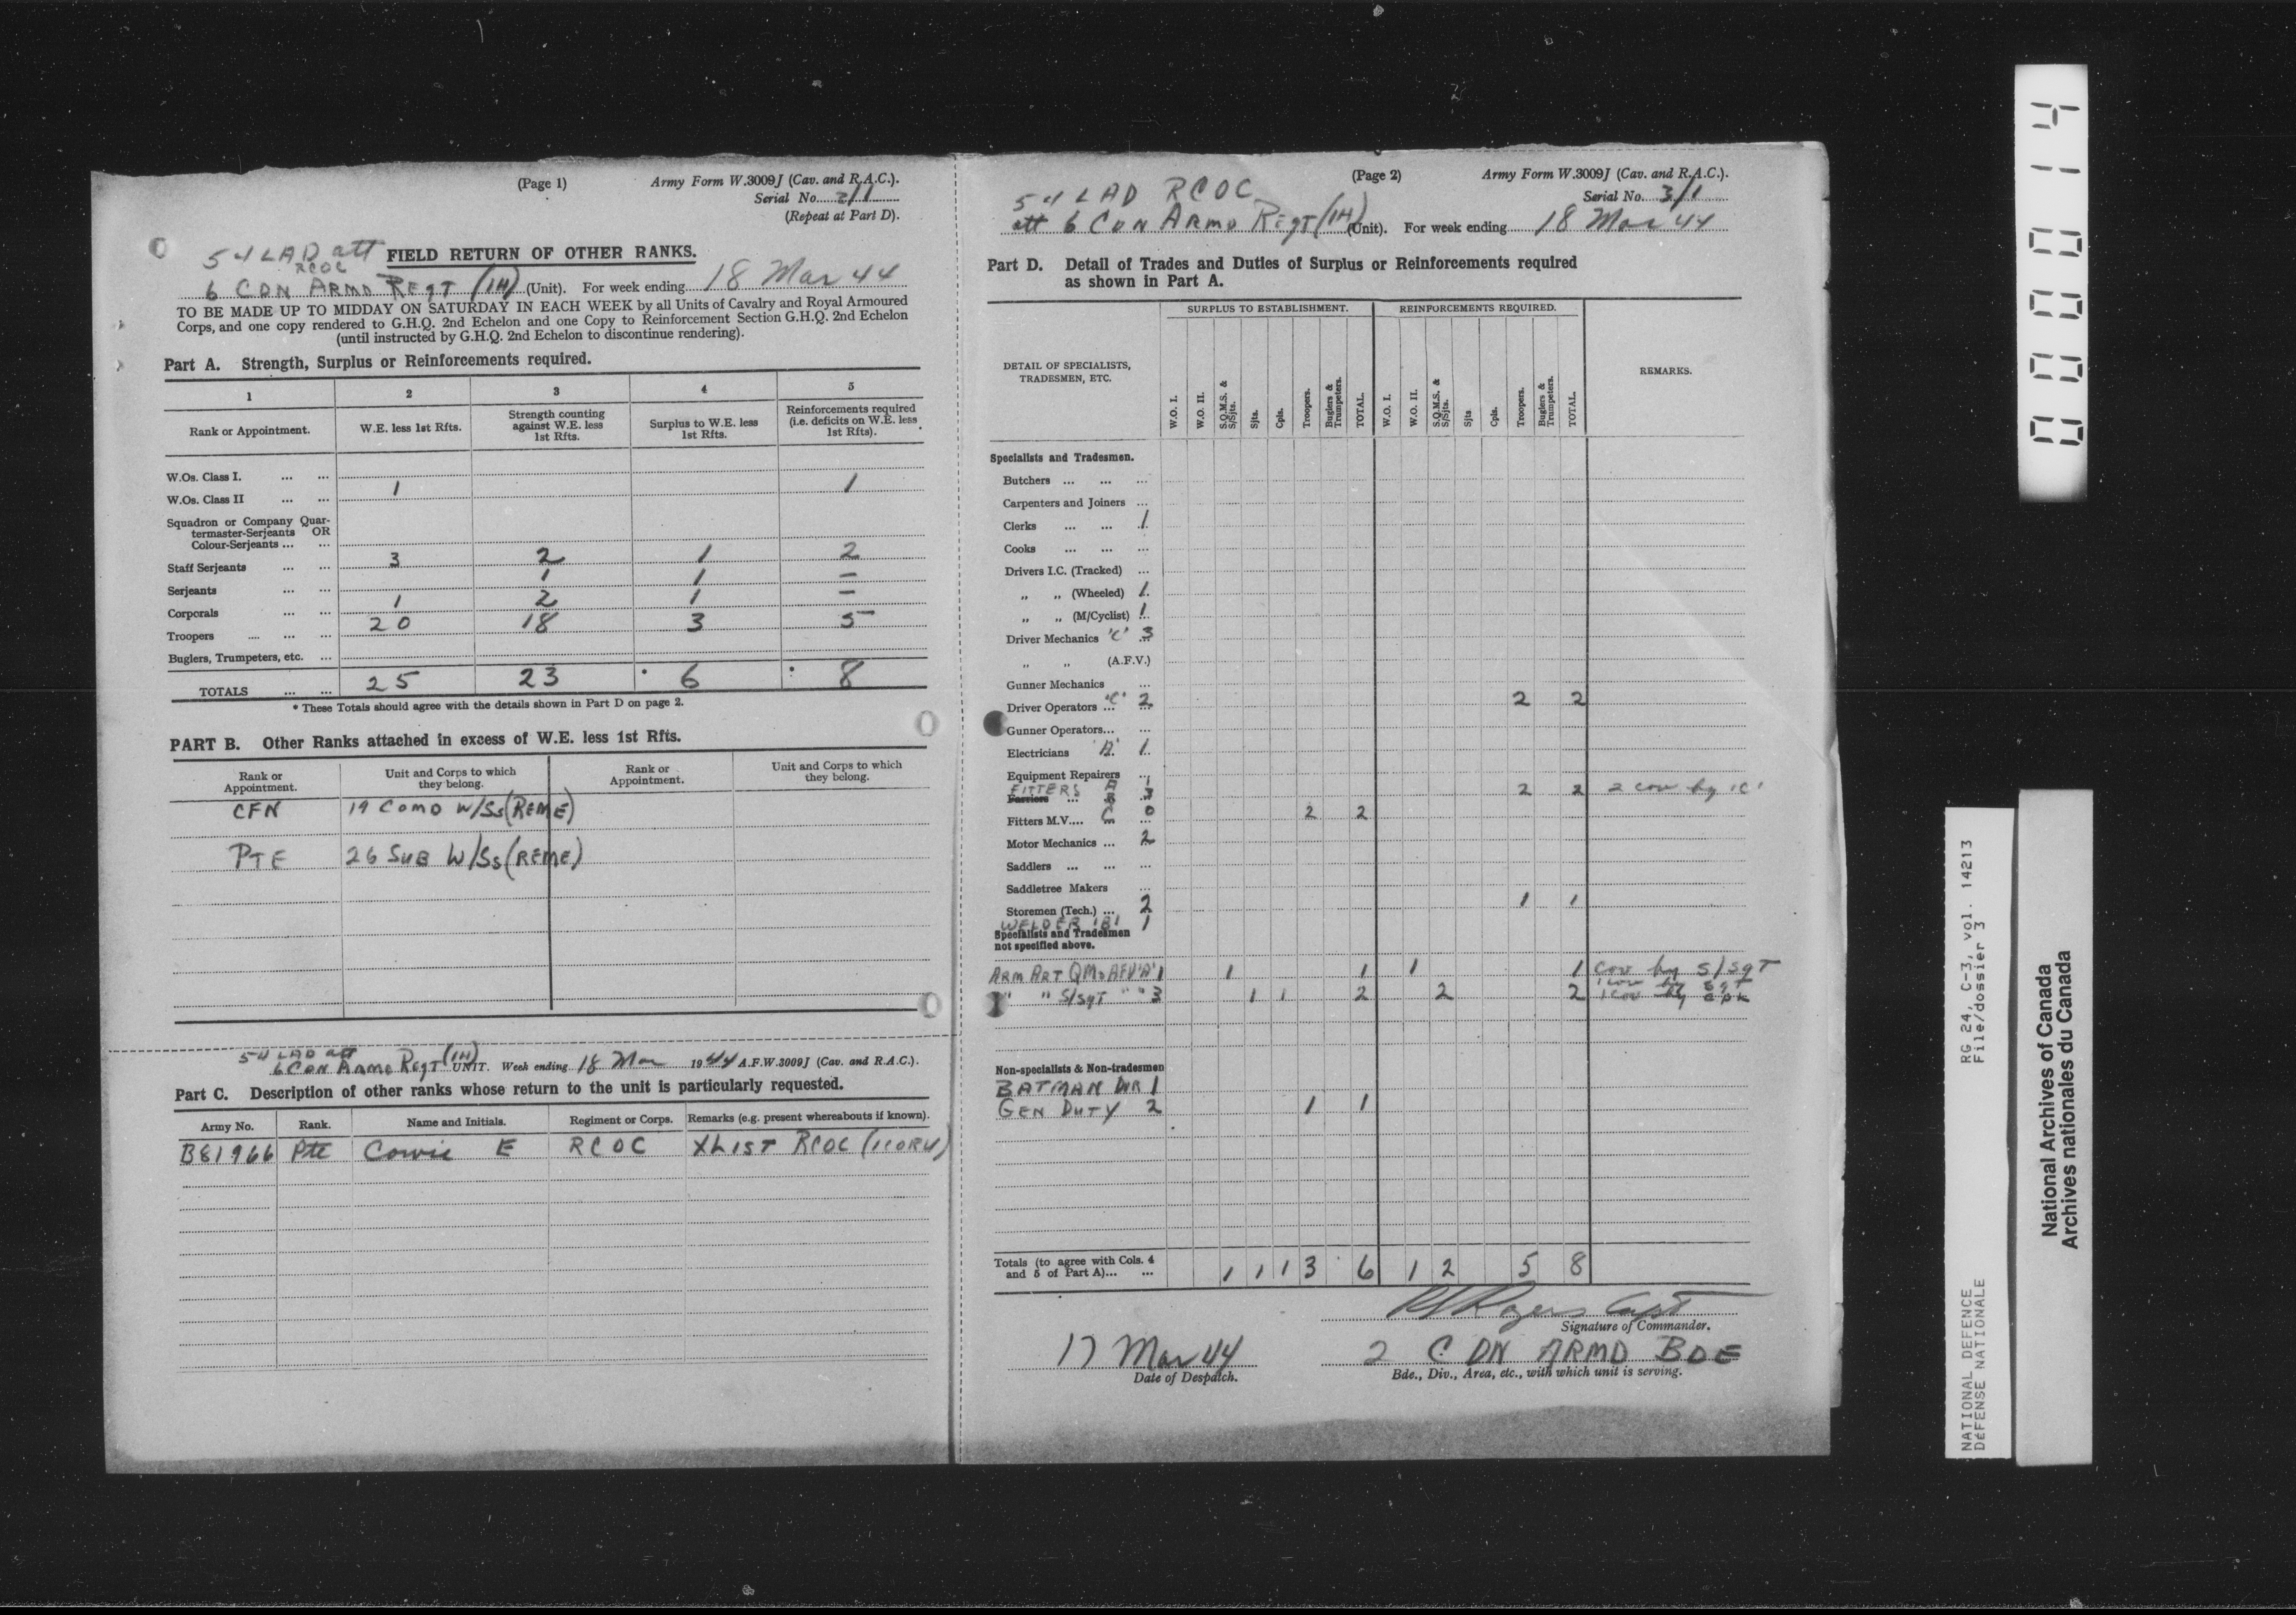 (Page 1) Army Form W.3009J (Cav. and R.A.C.).
Serial No. 2/1
(Repeat at Part D).
54 LAD att FIELD RETURN OF OTHER RANKS.
RCOC
6 CDN ARMD REGT (1H) (Unit). For week ending 18 Mar 44
TO BE MADE UP TO MIDDAY ON SATURDAY IN EACH WEEK by all Units of Cavalry and Royal Armoured
Corps, and one copy rendered to G.H.Q. 2nd Echelon and one Copy to Reinforcement Section G.H.Q. 2nd Echelon
(until instructed by G.H.Q. 2nd Echelon to discontinue rendering).
Part A. Strength, Surplus or Reinforcements required.
1 2 3 4 5
Rank or Appointment. W.E. less 1st Rfts. Strength counting against W.E. less 1st Rfts. Surplus to W.E. less 1st Rfts. Reinforcements required (i.e. deficits on W.E. less 1st Rfts).
W.Os. Class I. ... ...
W.Os. Class II ... ... 1 1
Squadron or Company Quar-
termaster-Serjeants OR
Colour-Serjeants ... ...
Staff Serjeants ... ... 3 2 1 2
Serjeants ... ... 1 1 –
Corporals ... ... 1 2 1 –
Troopers .... ... ... 20 18 3 5
Buglers, Trumpeters, etc. ...
TOTALS ... ... 25 23 * 6 * 8
* These Totals should agree with the details shown in Part D on page 2.
PART B. Other Ranks attached in excess of W.E. less 1st Rfts.
Rank or Appointment. Unit and Corps to which they belong. Rank or Appointment. Unit and Corps to which they belong.
CFN 19 COMD W/Ss (REME)
PTE 26 SUB W/Ss (REME)
54 LAD att
6 CDN ARMD REGT (1H) UNIT. Week ending 18 Mar 1944 A.F.W.3009J (Cav. and R.A.C.).
Part C. Description of other ranks whose return to the unit is particularly requested.
Army No. Rank. Name and Initials. Regiment or Corps. Remarks (e.g. present whereabouts if known).
B81966 Pte Cowie E RCOC X LIST RCOC (1CORU)
(Page 2) Army Form W.3009J (Cav. and R.A.C.).
Serial No. 3/1
54 LAD RCOC
att 6 CDN ARMD REGT (1H) (Unit). For week ending 18 Mar 44
Part D. Detail of Trades and Duties of Surplus or Reinforcements required
as shown in Part A.
DETAIL OF SPECIALISTS, TRADESMEN, ETC. SURPLUS TO ESTABLISHMENT. REINFORCEMENTS REQUIRED. REMARKS.
W.O. I. W.O. II. S.Q.M.S. & S/Sjts. Sjts. Cpls. Troopers. Buglers & Trumpeters. TOTAL. W.O. I. W.O. II. S.Q.M.S. & S/Sjts. Sjts Cpls. Troopers. Buglers & Trumpeters. TOTAL.
Specialists and Tradesmen.
Butchers ... ... ...
Carpenters and Joiners ...
Clerks ... ... 1
Cooks ... ... ...
Drivers I.C. (Tracked) ...
„ „ (Wheeled) 1
„ „ (M/Cyclist) 1
Driver Mechanics 'C' 3
„ „ (A.F.V.)
Gunner Mechanics ...
Driver Operators ... 'C' 2 2 2
Gunner Operators... ...
Electricians 'A' 1
Equipment Repairers ...
FITTERS A 1
Farriers ... B 3 2 2 2 cov by 'C'
Fitters M.V.... C 0 2 2
Motor Mechanics ... 2
Saddlers ... ... ...
Saddletree Makers ...
Storemen (Tech.) ... 2 1 1
WELDER 'B' 1
Specialists and Tradesmen
not specified above.
ARM ART QMS AFV 'A' 1 1 1 1 1 cov by S/SgT
" " S/SgT " " 3 1 1 2 2 2 1 cov by SgT
1 cov by cpl
Non-specialists & Non-tradesmen
BATMAN DVR 1
GEN DUTY 2 1 1
Totals (to agree with Cols. 4
and 5 of Part A)... ... 1 1 1 3 6 1 2 5 8
Rogers Capt
Signature of Commander.
17 Mar 44 2 CDN ARMD BDE
Date of Despatch. Bde., Div., Area, etc., with which unit is serving.
000014
RG 24, C-3, vol. 14213
File/dossier 3
NATIONAL DEFENCE
DÉFENSE NATIONALE
National Archives of Canada
Archives nationales du Canada